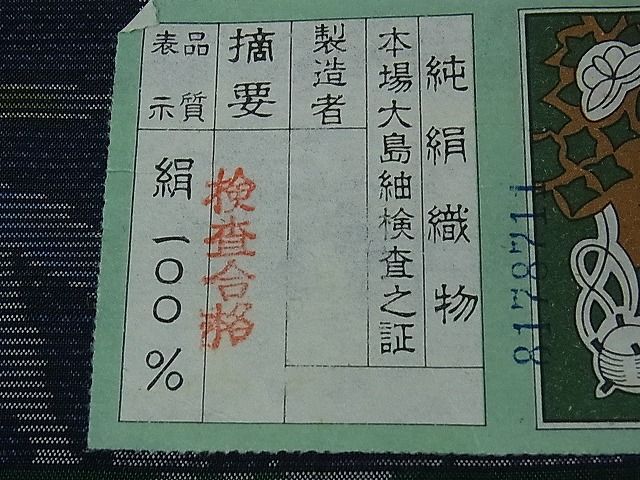 純絹織物
本場大島紬検査之証
製造者
摘要
検査合格
品質
表示
絹一〇〇%
8178711